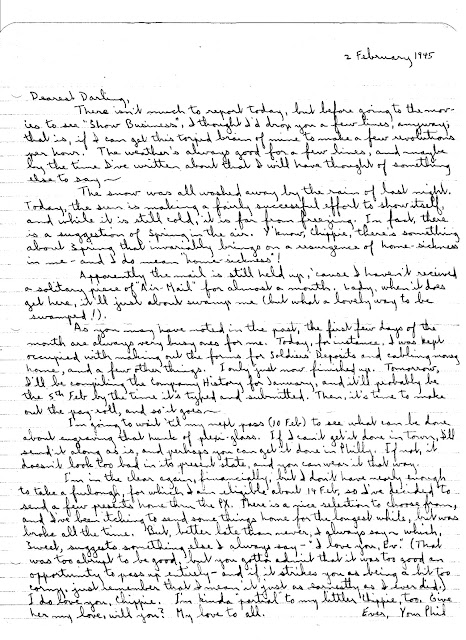 2 February 1945
Dearest Darling,
There isn't much to report today, but before going to the mov-
ies to see "Show Business", I thought I'd drop you a few lines, anyway;
that is, if I can get this torpid brain of mine to make a few revolutions
per hour. The weather's always good for a few lines, and maybe
by the time I've written about that I will have thought of something
else to say ~
The snow was all washed away by the rain of last night.
Today, the sun is making a fairly successful effort to show itself,
and while it is still cold, it is far from freezing. In fact, there
is a suggestion of Spring in the air. Y'know, Chippie, there's something
about Spring that invariably brings on a resurgence of home-sickness
in me - and I do mean "home-sickness"!
Apparently the mail is still held up, 'cause I haven't received
a solitary piece of "Air-Mail" for almost a month. Lady, when it does
get here, it'll just about swamp me (but what a lovely way to be
swamped!).
As you may have noted in the past, the first few days of the
month are always very busy ones for me. Today, for instance, I was kept
occupied with making out the forms for Soldiers' Deposits and cabling money
home, and a few other things. I only just now finished up. Tomorrow,
I'll be compiling the Company History for January, and it'll probably be
the 5th Feb by the time it's typed and submitted. Then, it's time to make
out the pay-roll, and so it goes ~
I'm going to wait 'til my next pass (10 Feb) to see what can be done
about engraving that hunk of plexi-glass. If I can't get it done in town, I'll
send it along as is, and perhaps you can get it done in Philly. If not, it
doesn't look too bad in its present state, and you can wear it that way.
I'm in the clear again, financially, but I don't have nearly enough
to take a furlough, for which I am eligible about 14 Feb, so I've decided to
send a few presents home thru the PX. There is a nice selection to choose from,
and I've been itching to send some things home for the longest while, but was
broke all the time. "But, better late than never, I always say", which,
Sweet, suggests something else I always say - "I love you, Ev." (That
was too abrupt to be good, but you gotta admit that it was too good an
opportunity to pass up entirely - and if it strikes you as being a bit too
corny, just remember that I mean it just as earnestly as I ever did.)
I do love you, Chippie. I'm kinda partial to my little Chippie, too. Give
her my love, will you? My love to all. Ever, Your Phil